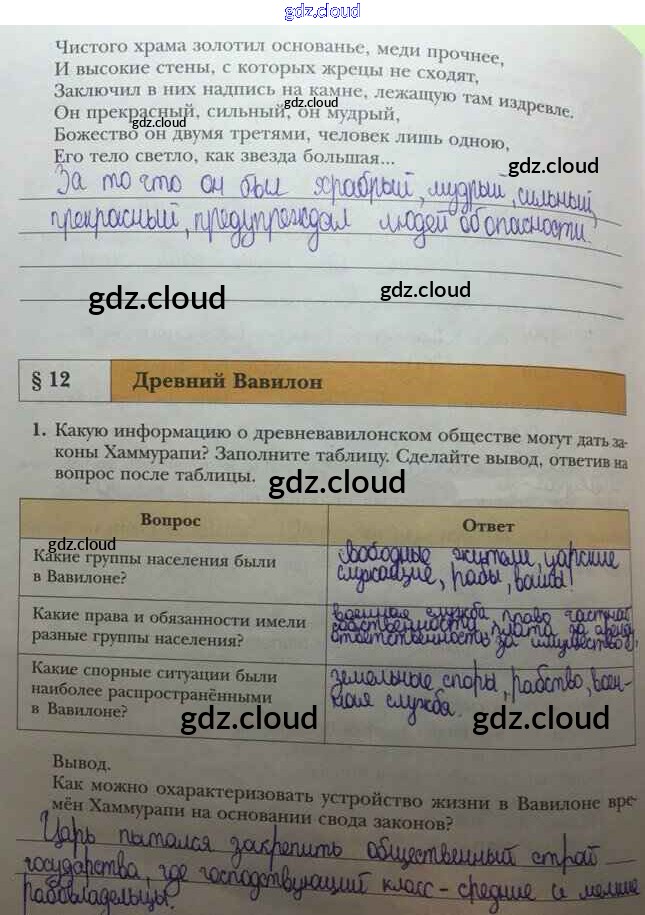 gdz.cloud
Чистого храма золотил основанье, меди прочнее,
И высокие стены, с которых жрецы не сходят,
Заключил в них надпись на камне, лежащую там издревле.
gdz.cloud
Он прекрасный, сильный, он мудрый,
gdz.cloud
Божество он двумя третями, человек лишь одною,
Его тело светло, как звезда большая...
gdz.cloud
За то что он был храбрый, мудрый, сильный,
прекрасный, предупреждал людей об опасности.
gdz.cloud
gdz.cloud
§ 12 Древний Вавилон
1. Какую информацию о древневавилонском обществе могут дать за-
коны Хаммурапи? Заполните таблицу. Сделайте вывод, ответив на
вопрос после таблицы.
gdz.cloud
Вопрос Ответ
gdz.cloud
Какие группы населения были
в Вавилоне?
свободные жители, царские
служащие, рабы,
Какие права и обязанности имели
разные группы населения?
военная служба, право частной
собственности, плата за аренду,
ответственность за имущество
Какие спорные ситуации были
наиболее распространёнными
в Вавилоне?
земельные споры, рабство, воен-
ная служба.
gdz.cloud
gdz.cloud
Вывод.
Как можно охарактеризовать устройство жизни в Вавилоне вре-
мён Хаммурапи на основании свода законов?
Царь пытался закрепить общественный строй
государства, где господствующий класс - средние и мелкие
рабовладельцы.